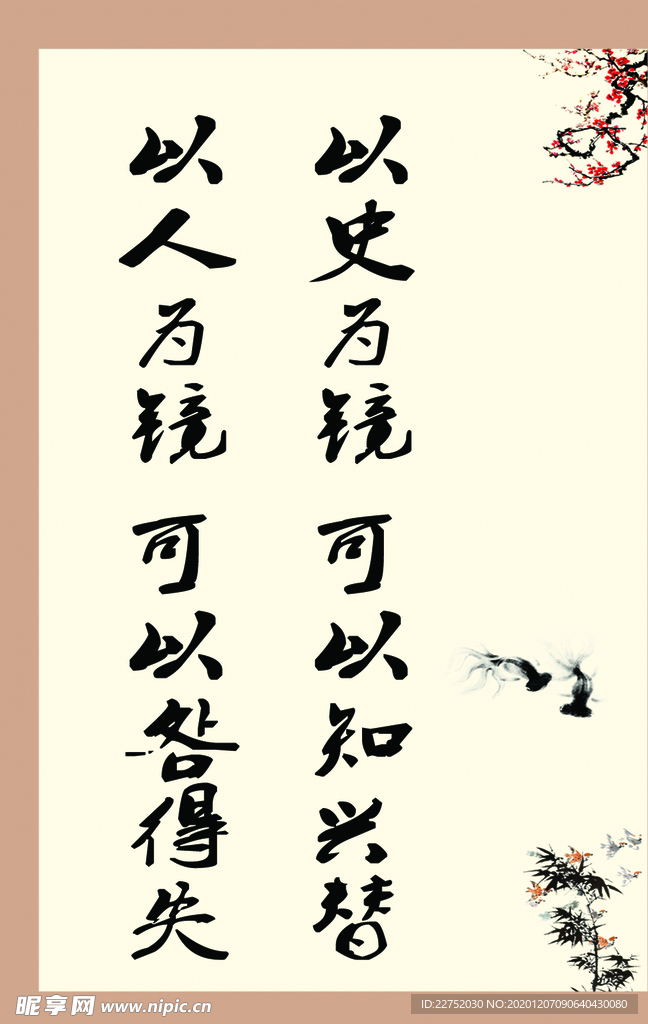 以史为镜 可以知兴替
以人为镜 可以咎得失
昵享网 www.nipic.cn
ID:22752030 NO:20201207090640430080